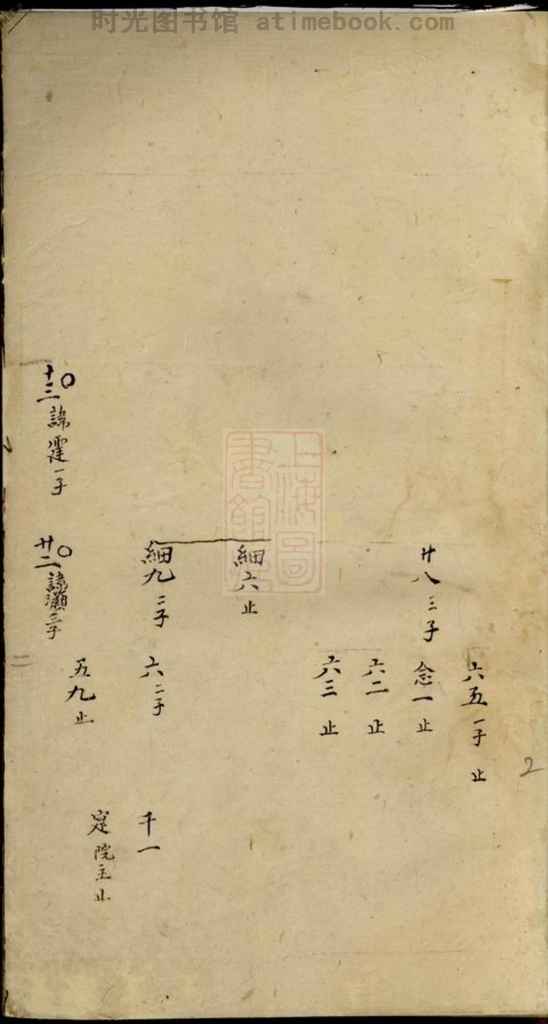 时光图书馆 atimebook.com
六五 一子 止
廿八 三子
念一 止
六二 止
六三 止
細六 止
細九 二子
六 二子
千一
五九 止
定院主止
十三 諱霆 一子
廿二 諱瀨 三子
上海圖書館藏
2